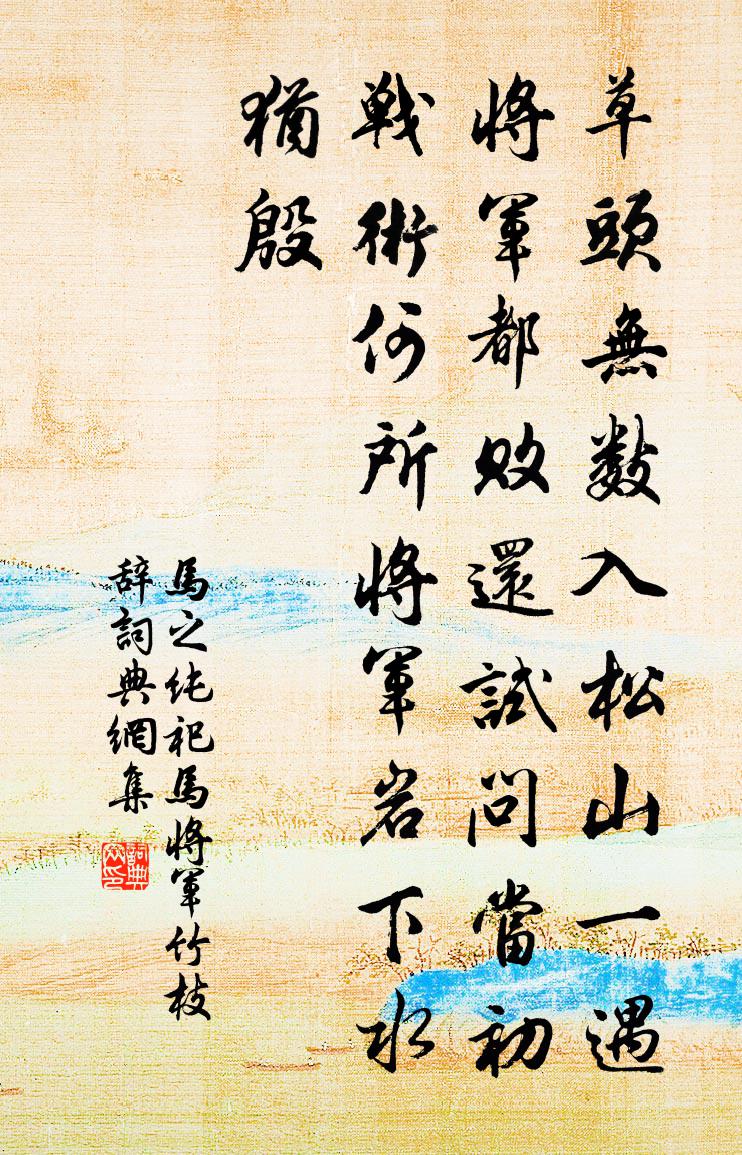 草頭無數入松山一遇
將軍都敗還試問當初
戰術何所將軍岩下水
猶殷
馬之純祀馬將軍竹枝
辞詞典網集